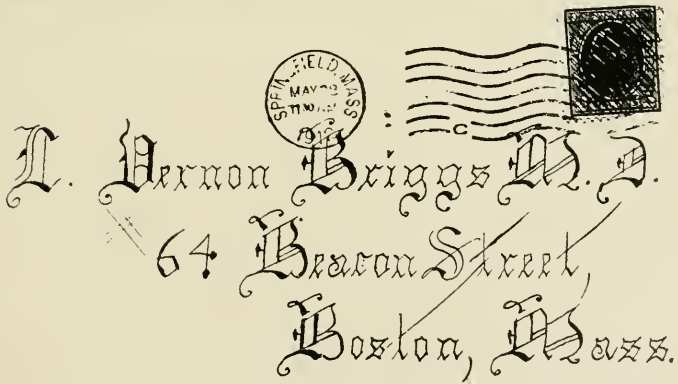 SPRINGFIELD, MASS
MAY
C
L. Vernon Briggs M.D.
64 Beacon Street,
Boston, Mass.